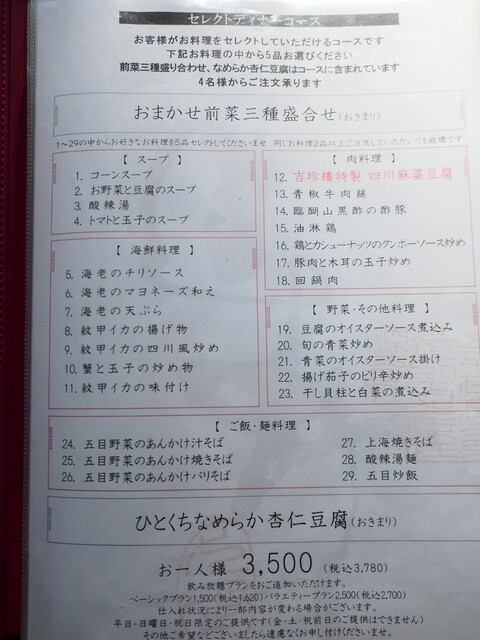 セレクトディナーコース
お客様がお料理をセレクトしていただけるコースです
下記お料理の中から5品お選びください
前菜三種盛り合わせ、なめらか杏仁豆腐はコースに含まれています
4名様からご注文承ります
おまかせ前菜三種盛合せ(おきまり)
1～29の中からお好きなお料理を5品セレクトしてくださいませ 同じお料理2品以上ご注文していただいても結構です
【 スープ 】
1. コーンスープ
2. お野菜と豆腐のスープ
3. 酸辣湯
4. トマトと玉子のスープ
【 海鮮料理 】
5. 海老のチリソース
6. 海老のマヨネーズ和え
7. 海老の天ぷら
8. 紋甲イカの揚げ物
9. 紋甲イカの四川風炒め
10. 蟹と玉子の炒め物
11. 紋甲イカの味付け
【 肉料理 】
12. 吉珍樓特製 四川麻婆豆腐
13. 青椒牛肉絲
14. 臨醐山黒酢の酢豚
15. 油淋鶏
16. 鶏とカシューナッツのクンポーソース炒め
17. 豚肉と木耳の玉子炒め
18. 回鍋肉
【 野菜・その他料理 】
19. 豆腐のオイスターソース煮込み
20. 旬の青菜炒め
21. 青菜のオイスターソース掛け
22. 揚げ茄子のピリ辛炒め
23. 干し貝柱と白菜の煮込み
【 ご飯・麺料理 】
24. 五目野菜のあんかけ汁そば
25. 五目野菜のあんかけ焼きそば
26. 五目野菜のあんかけバリそば
27. 上海焼きそば
28. 酸辣湯麺
29. 五目炒飯
ひとくちなめらか杏仁豆腐(おきまり)
お一人様 3,500 (税込3,780)
飲み放題プランをおご追加いただけます。
ベーシックプラン1,500(税込1,620) バラエティープラン2,500(税込2,700)
仕入れ状況により一部内容が変わる場合がございます。
平日・日曜日・祝日限定のご提供です(金・土・祝前日のご提供はできません)
その他ご希望などございましたら遠慮なくお申し付けくださいませ。